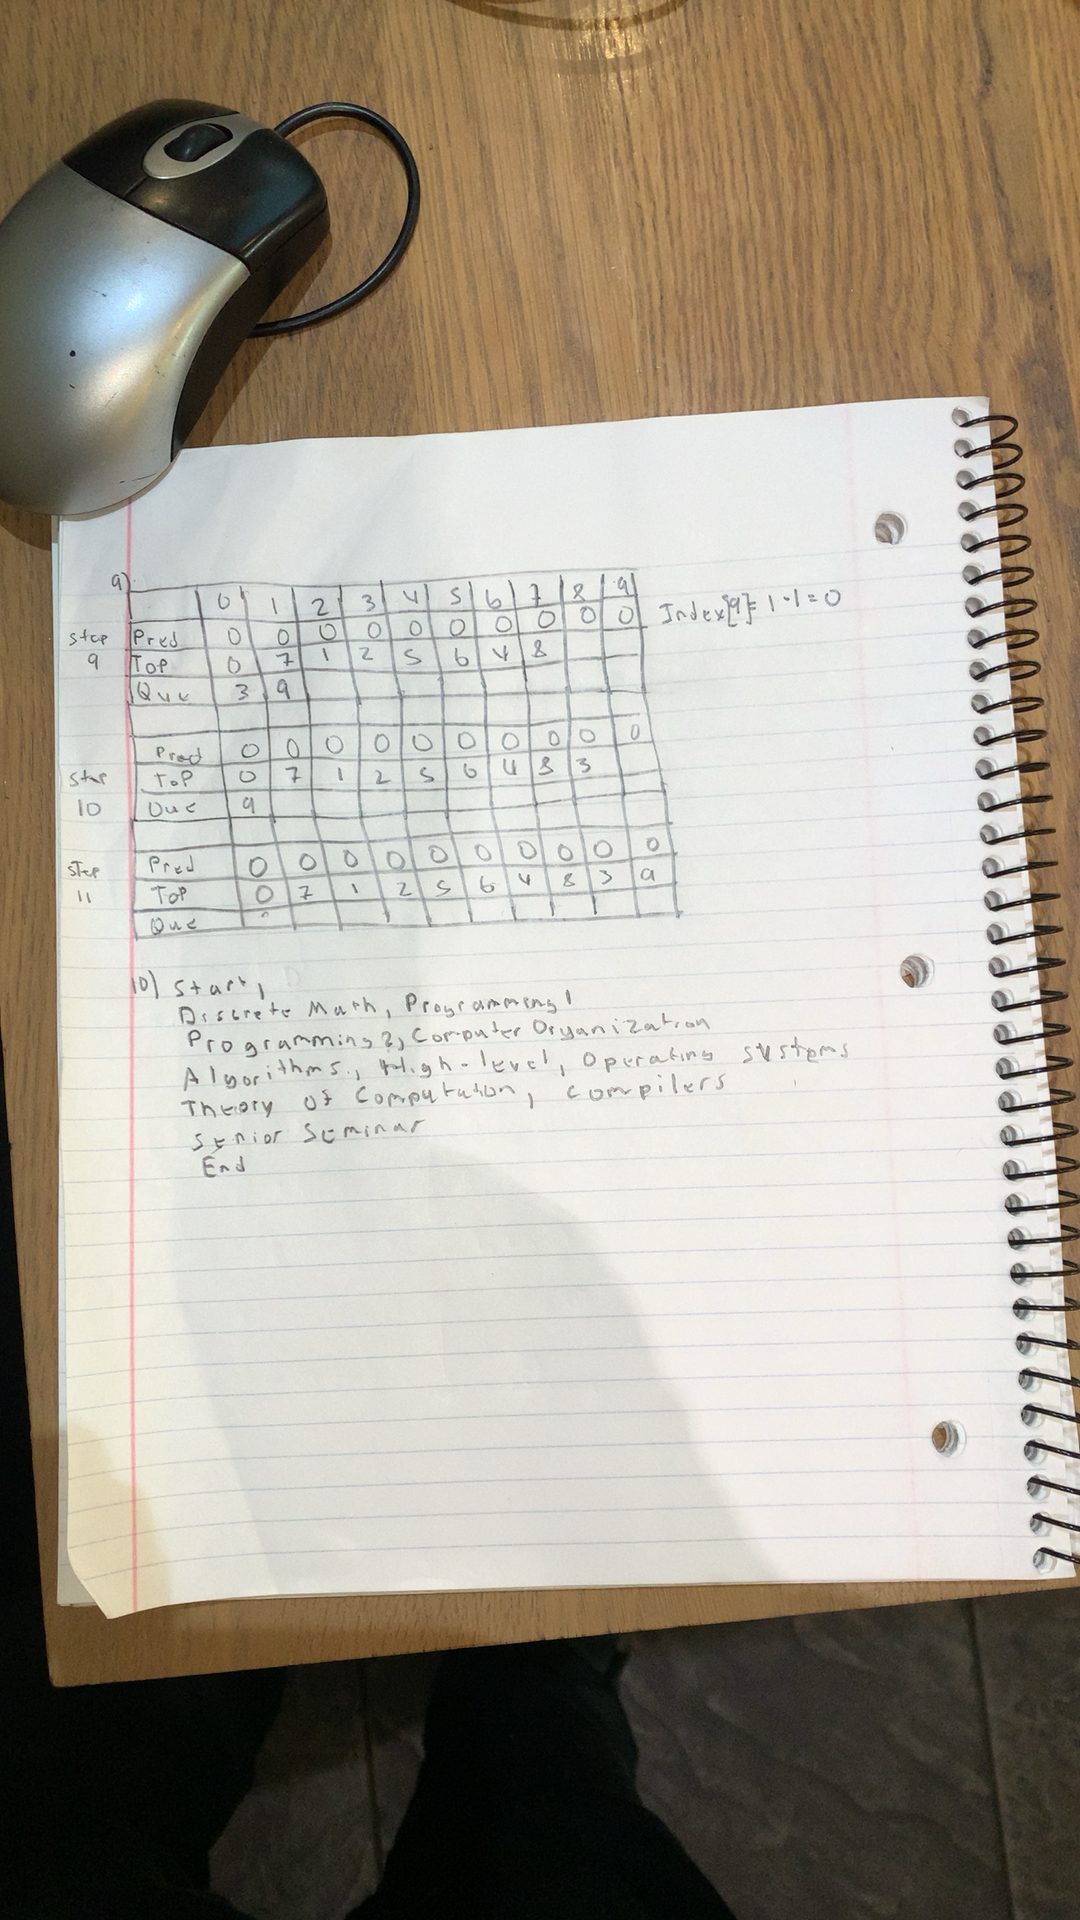 9)
0 1 2 3 4 5 6 7 8 9
step 9 Pred 0 0 0 0 0 0 0 0 0 0 Index[9]= 1-1=0
Top 0 7 1 2 5 6 4 8
Que 3 9
Pred 0 0 0 0 0 0 0 0 0 0
Step 10 Top 0 7 1 2 5 6 4 8 3
Que 9
Step 11 Pred 0 0 0 0 0 0 0 0 0 0
Top 0 7 1 2 5 6 4 8 3 9
Que
10) Start,
Discrete Math, Programming 1
Programming 2, Computer Organization
Algorithms, High-level, Operating systems
Theory of Computation, Compilers
Senior Seminar
End